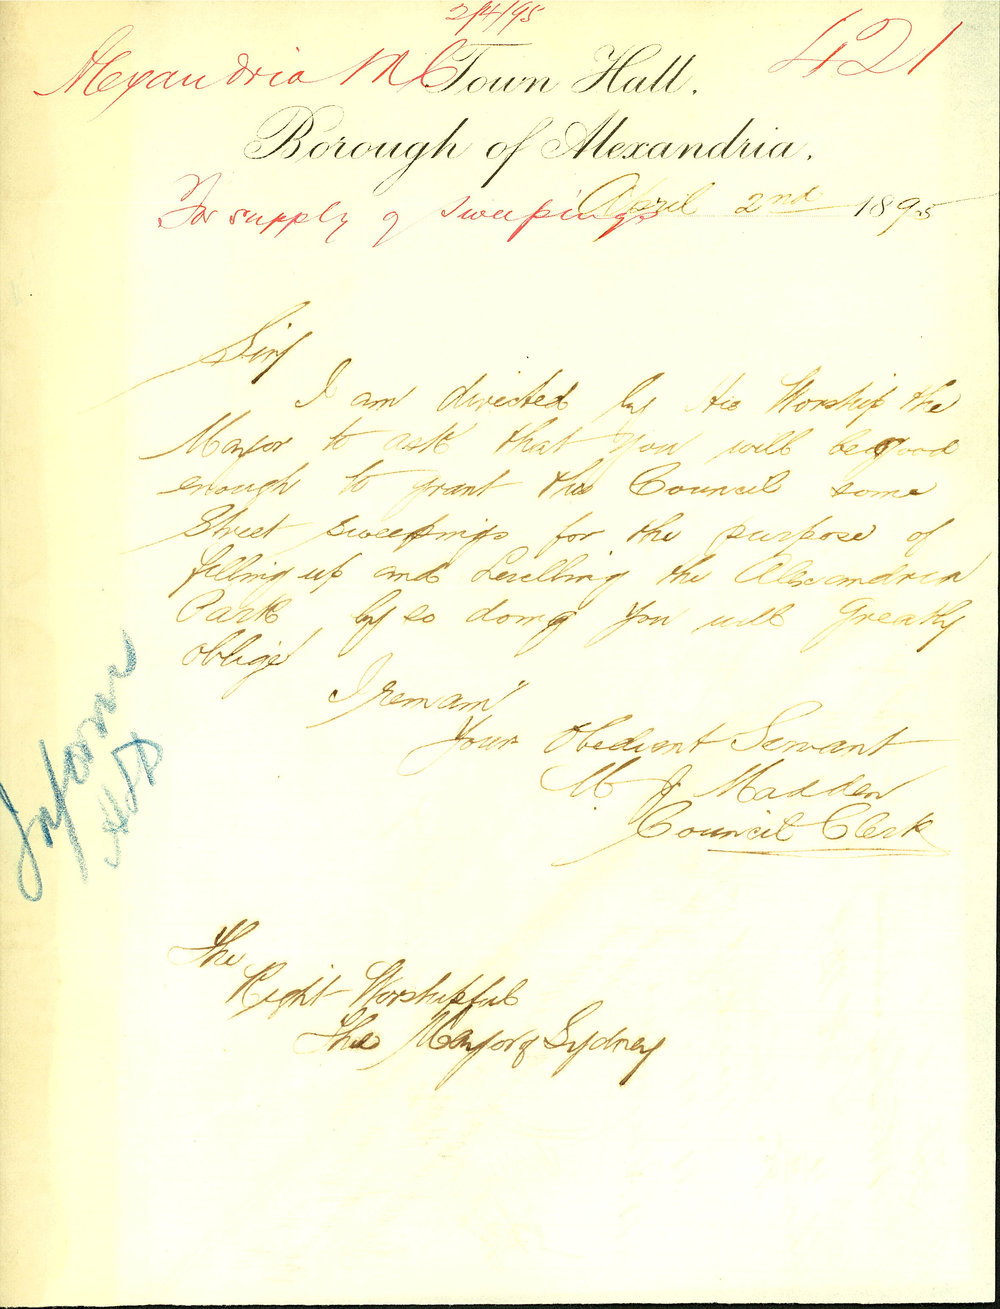 2/4/95
Alexandria M C
421
Town Hall.
Borough of Alexandria.
For supply of sweepings
April 2nd 1895
Sir
I am directed by His Worship the
Mayor to ask that you will be good
enough to grant this Council some
Street sweepings for the purpose of
filling up and Levelling the Alexandria
Park by so doing you will Greatly
oblige
I remain
Your Obedient Servant
M J Madden
Council Clerk
Inform
The
Right Worshipful
The Mayor of Sydney